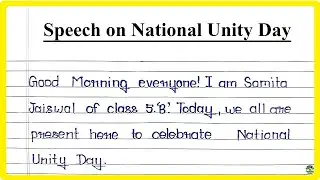 Speech on National Unity Day
Good Morning everyone! I am Samita
Jaiswal of class 5.'B'. Today, we all are
present here to celebrate National
Unity Day.